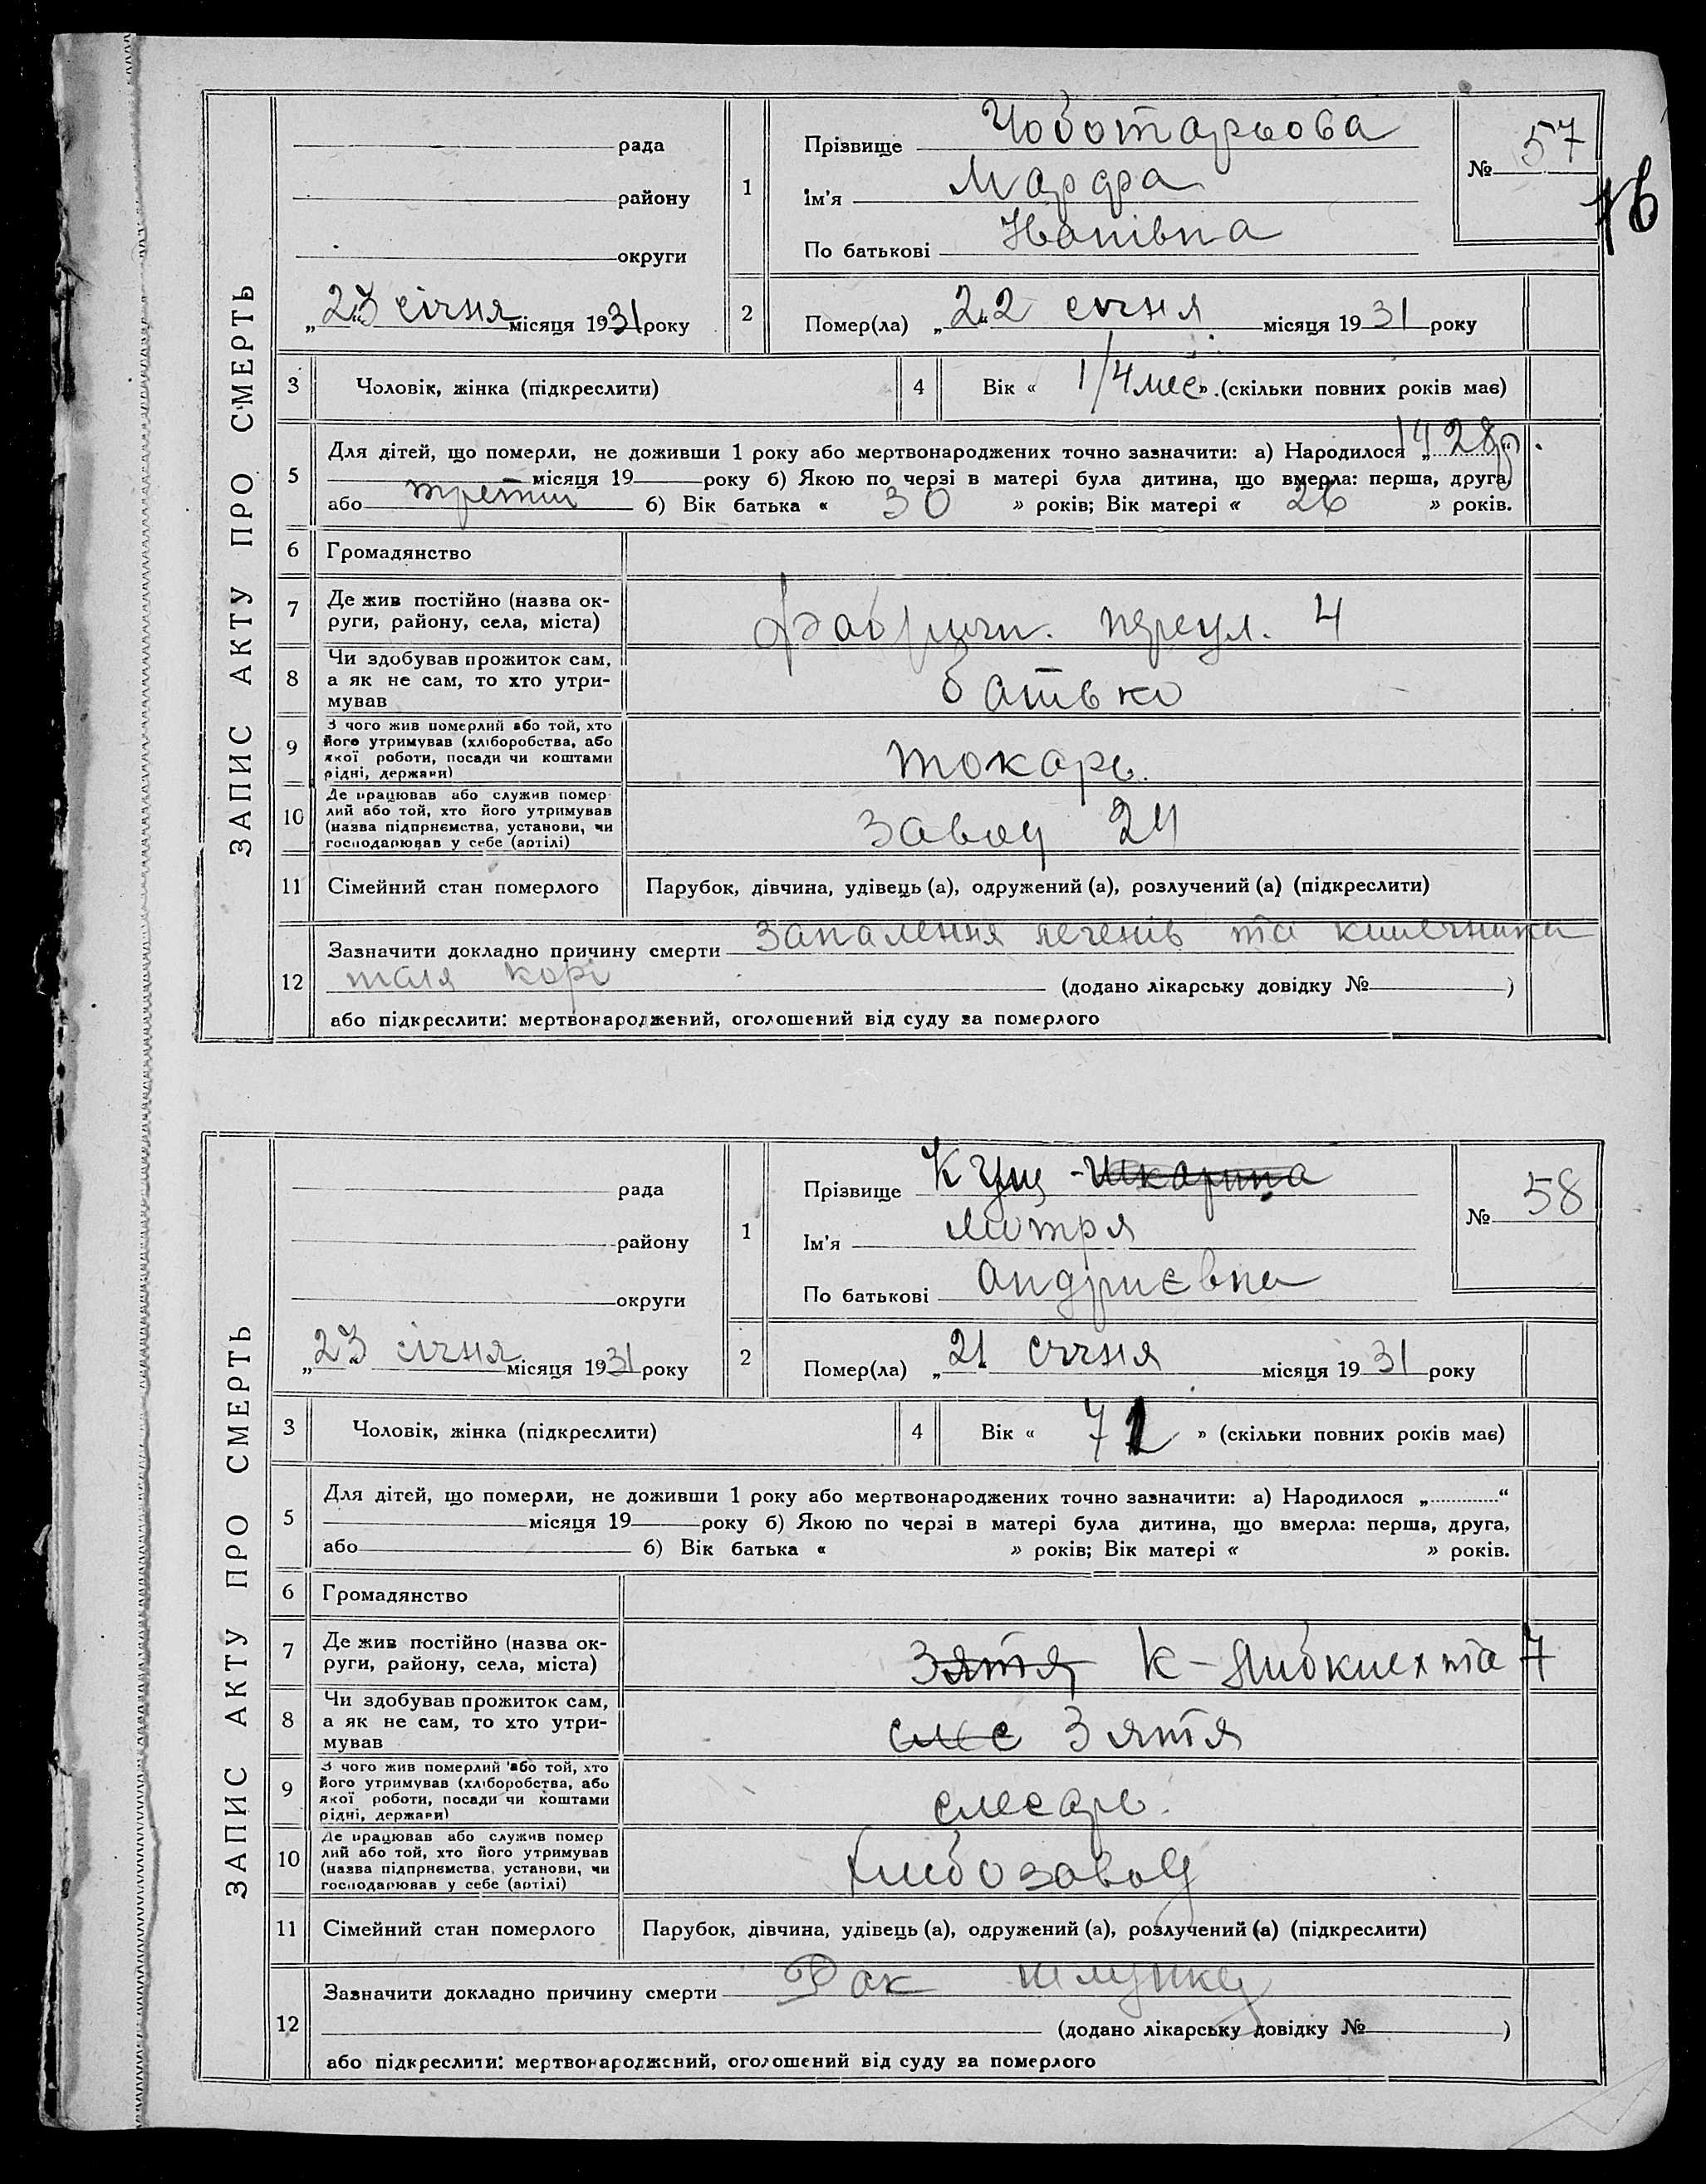 ЗАПИС АКТУ ПРО СМЕРТЬ
рада
району
округи
„23“ січня місяця 1931 року
1
Прізвище Чоботарьова
Ім'я Марфа
По батькові
№ 57
16
2
Помер(ла) „22“ січня місяця 1931 року
3
Чоловік, жінка (підкреслити)
4
Вік « 1/4 міс » (скільки повних років має)
5
Для дітей, що померли, не доживши 1 року або мертвонароджених точно зазначити: а) Народилося „ 1928р “
місяця 19 року б) Якою по черзі в матері була дитина, що вмерла: перша, друга,
або третш б) Вік батька « 30 » років; Вік матері « 26 » років.
6
Громадянство
7
Де жив постійно (назва ок-
руги, району, села, міста)
Фабричн. переул. 4
8
Чи здобував прожиток сам,
а як не сам, то хто утри-
мував
батько
9
З чого жив померлий або той, хто
його утримував (хліборобства, або
якої роботи, посади чи коштами
рідні, держави)
токарь.
10
Де працював або служив помер-
лий або той, хто його утримував
(назва підприємства, установи, чи
господарював у себе (артілі)
завод 24
11
Сімейний стан померлого
Парубок, дівчина, удівець (а), одружений (а), розлучений (а) (підкреслити)
12
Зазначити докладно причину смерти Запалення легенів та кишечника
корі (додано лікарську довідку № )
або підкреслити: мертвонароджений, оголошений від суду за померлого
ЗАПИС АКТУ ПРО СМЕРТЬ
рада
району
округи
„23“ січня місяця 1931 року
1
Прізвище Кущ - Шкарипа
Ім'я Мотря
По батькові Андриєвна
№ 58
2
Помер(ла) „21 січня місяця 1931 року
3
Чоловік, жінка (підкреслити)
4
Вік « 71 » (скільки повних років має)
5
Для дітей, що померли, не доживши 1 року або мертвонароджених точно зазначити: а) Народилося „ “
місяця 19 року б) Якою по черзі в матері була дитина, що вмерла: перша, друга,
або б) Вік батька « » років; Вік матері « » років.
6
Громадянство
7
Де жив постійно (назва ок-
руги, району, села, міста)
Зятя К-Либкнехта 7
8
Чи здобував прожиток сам,
а як не сам, то хто утри-
мував
слес Зятя
9
З чого жив померлий або той, хто
його утримував (хліборобства, або
якої роботи, посади чи коштами
рідні, держави)
слесарь.
10
Де працював або служив помер
лий або той, хто його утримував
(назва підприємства, установи, чи
господарював у себе (артілі)
Хлибозавод
11
Сімейний стан померлого
Парубок, дівчина, удівець (а), одружений (а), розлучений (а) (підкреслити)
12
Зазначити докладно причину смерти Рак шлунку
(додано лікарську довідку № )
або підкреслити: мертвонароджений, оголошений від суду за померлого